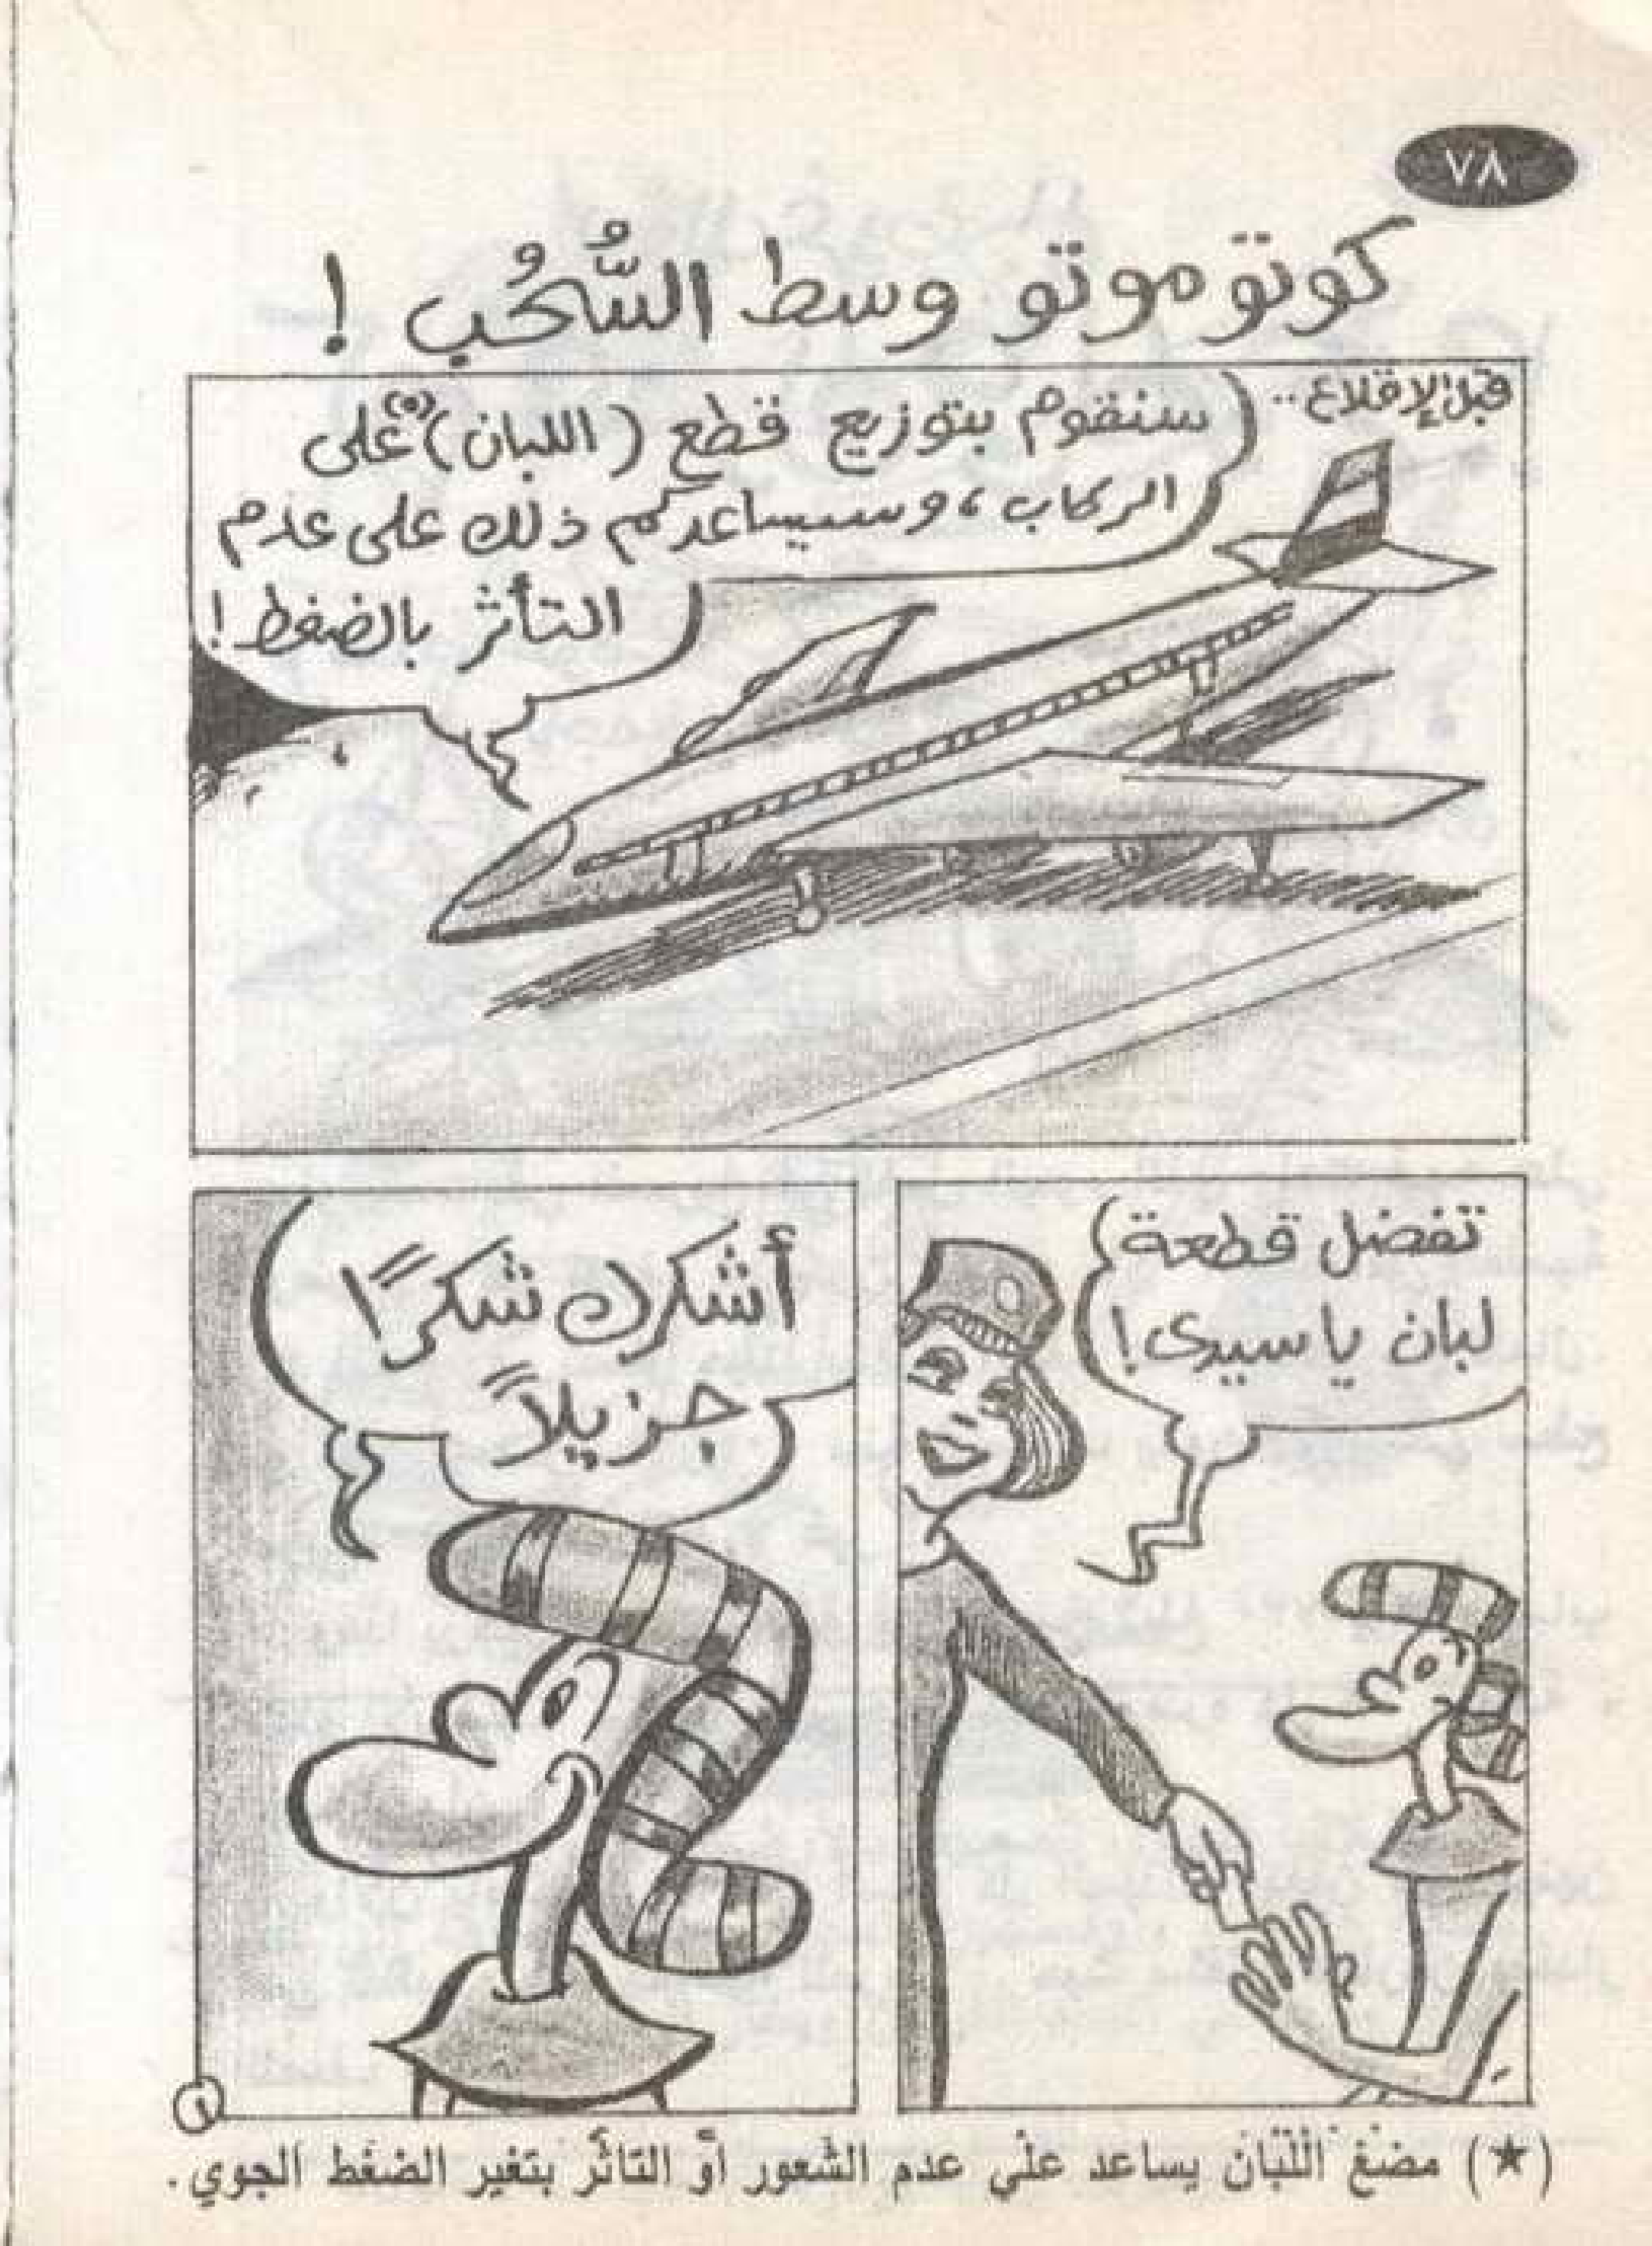 ٧٨
كوتوموتو وسط السُّحُب !
قبل الإقلاع ..
سنقوم بتوزيع قطع (اللبان)(*) على
الركاب ، وسيساعدكم ذلك على عدم
التأثر بالضغط !
تفضل قطعة
لبان يا سيدى !
أشكرك شكرًا
جزيلاً
١
(★) مضغ اللبان يساعد على عدم الشعور أو التأثر بتغير الضغط الجوي .